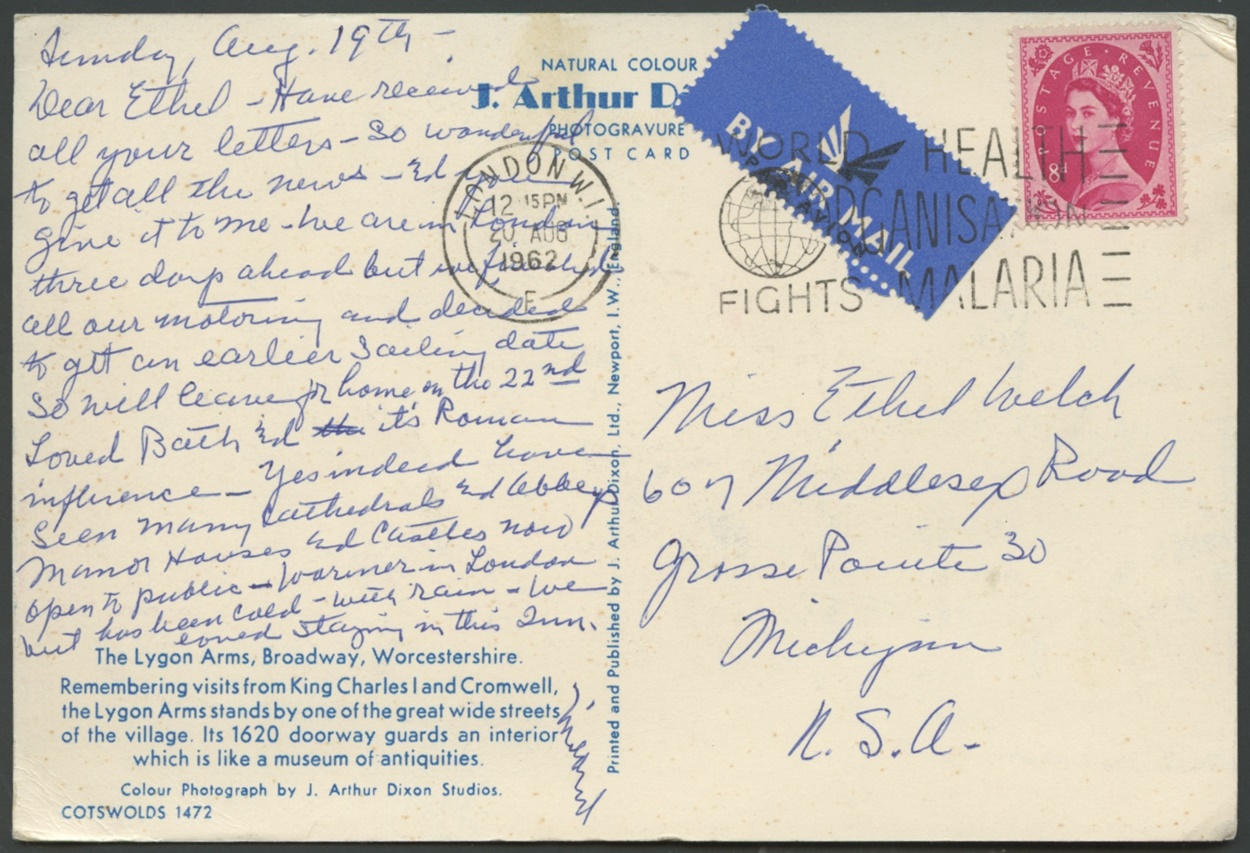 Sunday, Aug. 19th -
Dear Ethel - Have received
all your letters - So wonderful
to get all the news - Ed
give it to me - We are in London
three days ahead but we finished
all our motoring and decided
to get an earlier Sailing date
So will leave for home on the 22nd
Loved Bath Ed its Roman
influence - Yes indeed have
Seen many Cathedrals Ed Abbeys
Manor Houses Ed Castles now
open to public - Warmer in London
but has been cold - with rain - We
loved staying in this Inn.
Mildred
The Lygon Arms, Broadway, Worcestershire.
Remembering visits from King Charles I and Cromwell,
the Lygon Arms stands by one of the great wide streets
of the village. Its 1620 doorway guards an interior
which is like a museum of antiquities.
Colour Photograph by J. Arthur Dixon Studios.
COTSWOLDS 1472
NATURAL COLOUR
J. Arthur Di
PHOTOGRAVURE
POST CARD
LONDON W.1
12 15PM
20 AUG
1962
E
Printed and Published by J. Arthur Dixon, Ltd., Newport, I. W., England
BY AIR MAIL
PAR AVION
WORLD HEALTH
ORGANISATION
FIGHTS MALARIA
POSTAGE REVENUE
8d
Miss Ethel Welch
607 Middlesex Road
Grosse Pointe 30
Michigan
U.S.A.